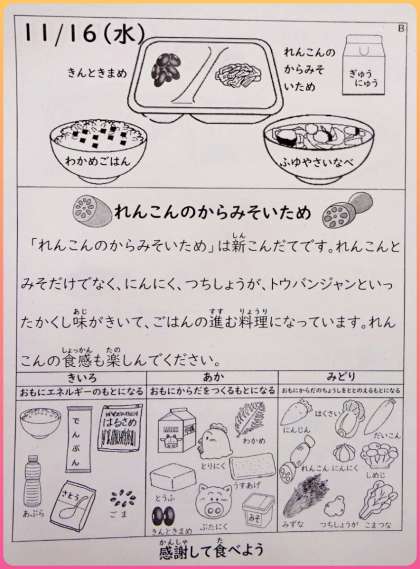 11/16(水)
B
きんときまめ
れんこんの
からみそ
いため
ぎゅう
にゅう
わかめごはん
ふゆやさいなべ
れんこんのからみそいため
「れんこんのからみそいため」は新こんだてです。れんこんと
みそだけでなく、にんにく、つちしょうが、トウバンジャンといっ
たかくし味がきいて、ごはんの進む料理になっています。れん
こんの食感も楽しんでください。
きいろ
おもにエネルギーのもとになる
でんぷん
はるさめ
あぶら
さとう
ごま
あか
おもにからだをつくるもとになる
わかめ
とりにく
とうふ
うすあげ
きんときまめ
ぶたにく
みそ
みどり
おもにからだのちょうしをととのえるもとになる
にんじん
はくさい
だいこん
れんこん
にんにく
しめじ
みずな
つちしょうが
こまつな
感謝して食べよう